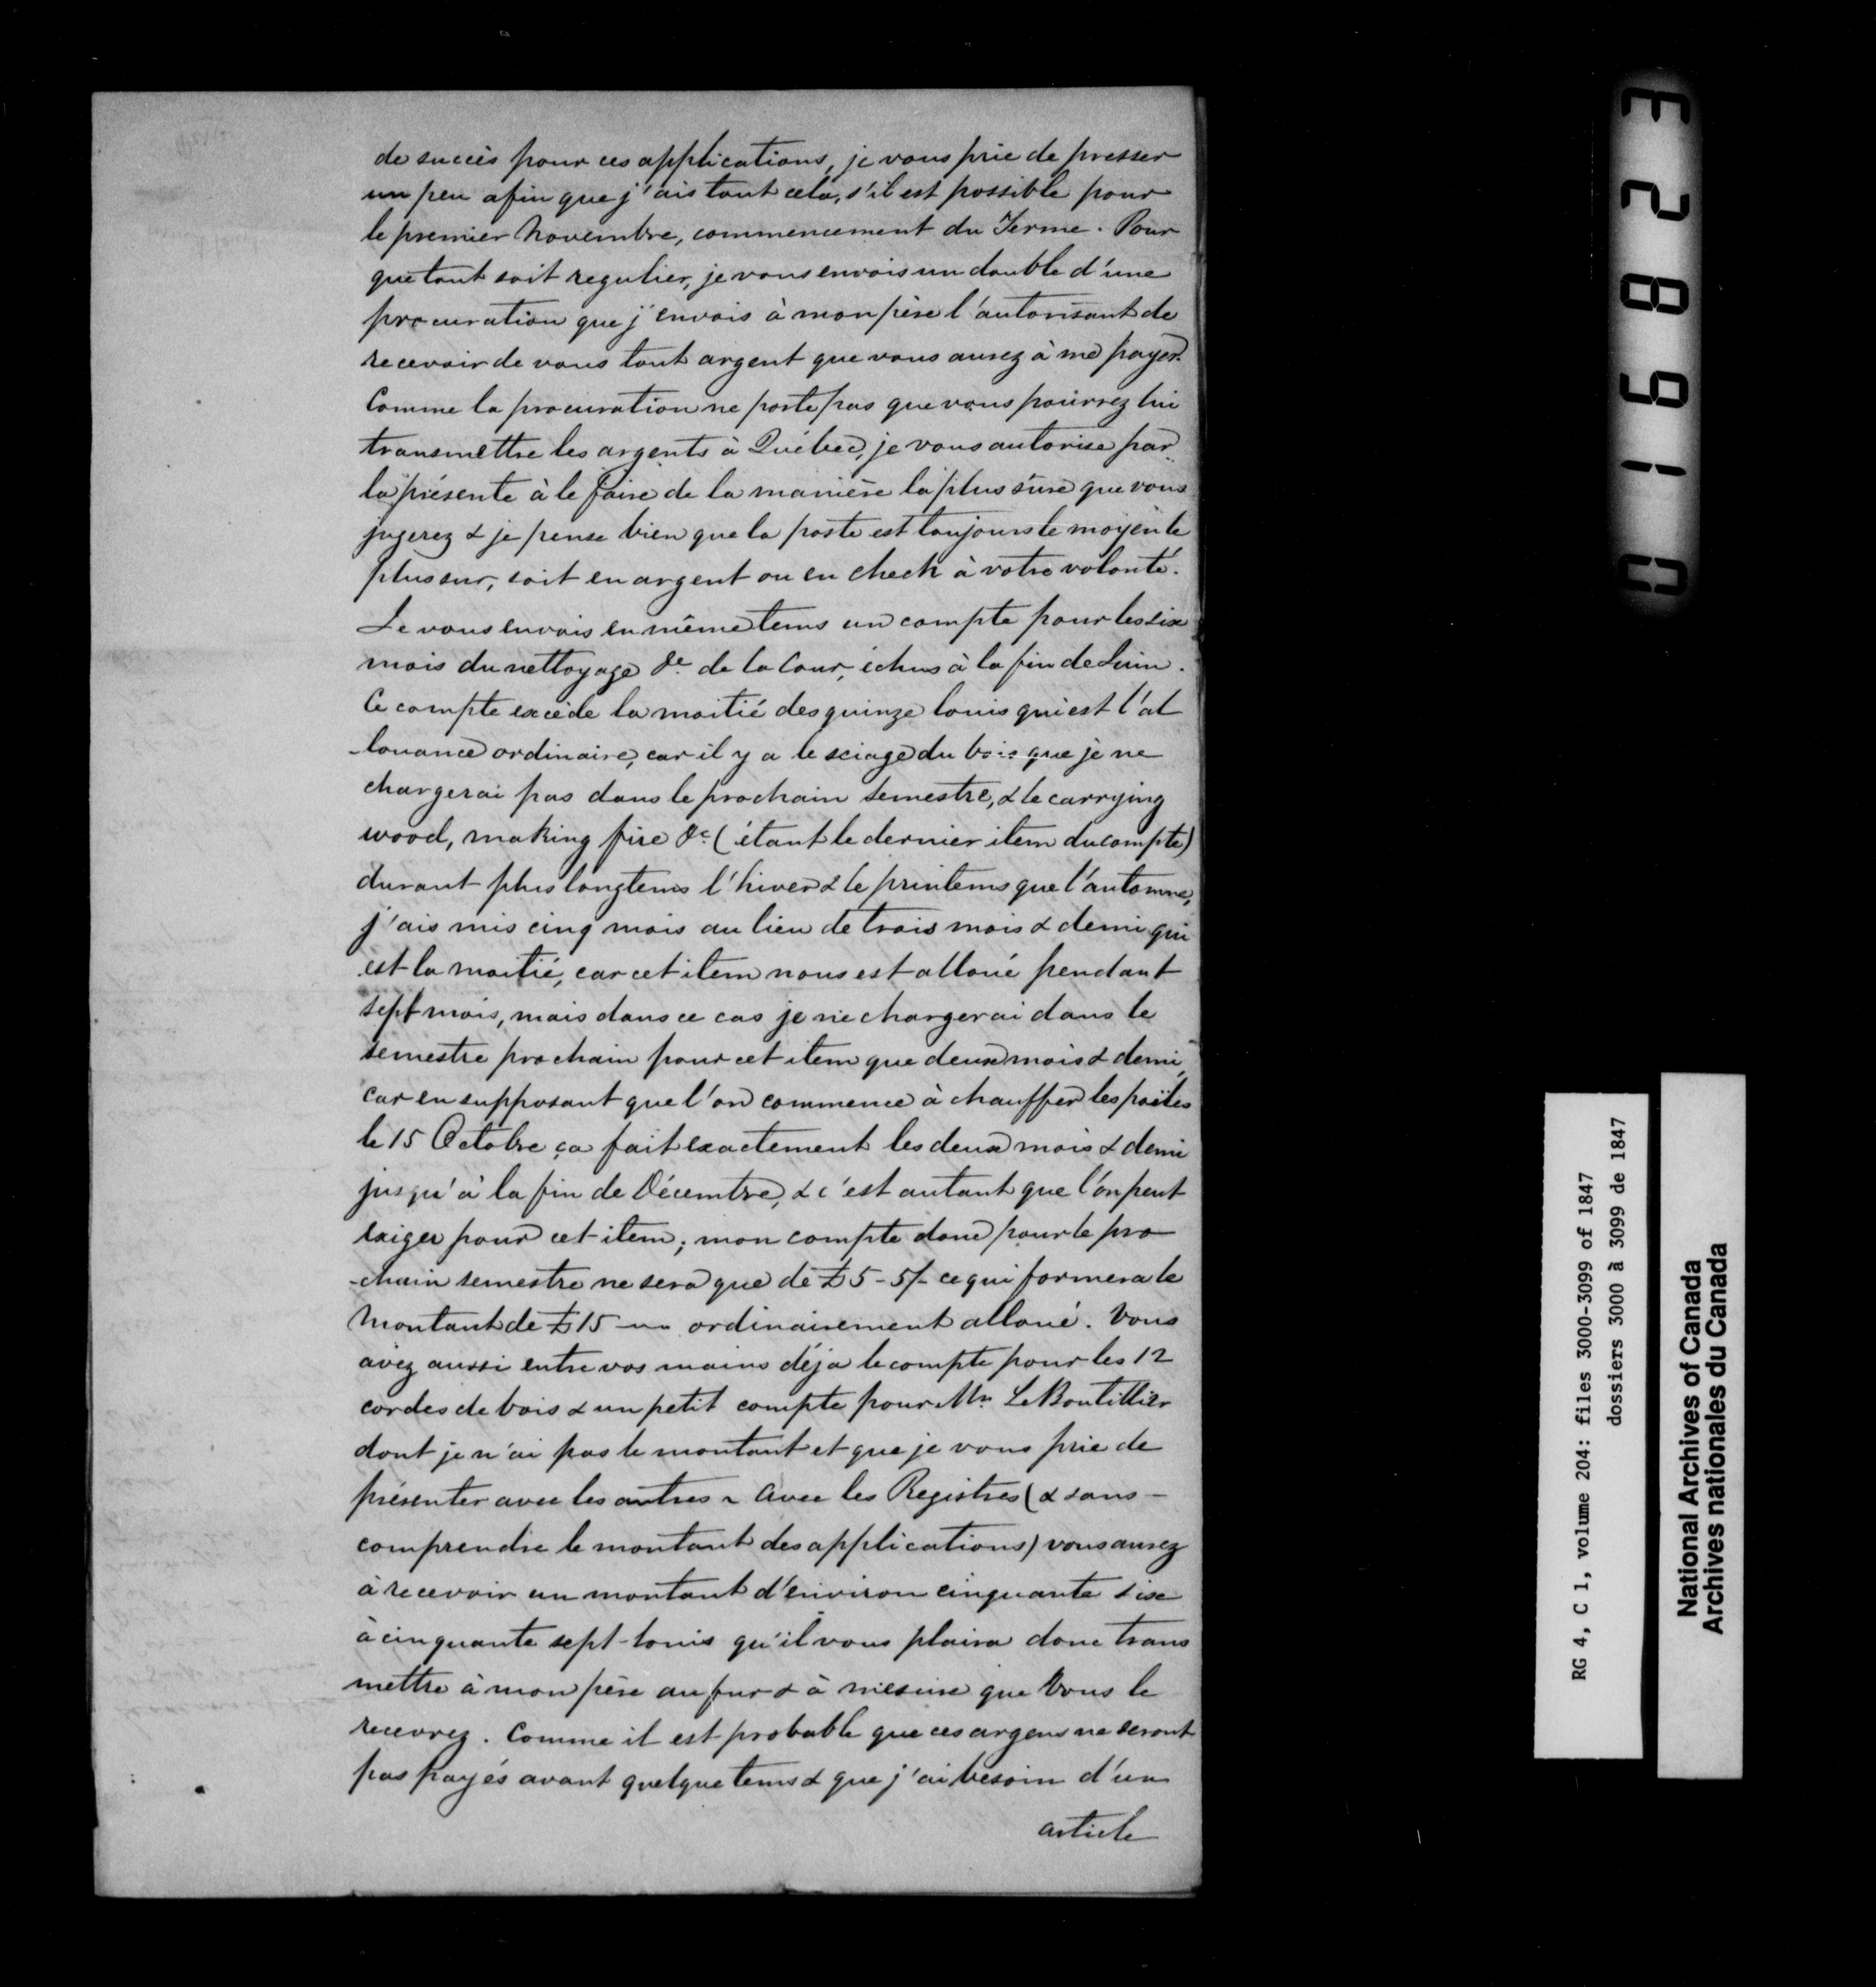 de succès pour ces applications, je vous prie de presser
un peu afin que j'ais tout cela, s'il est possible pour
le premier Novembre, commencement du Terme. Pour
que tout soit regulier, je vous envois un double d'une
procuration que j'envois à mon père l'autorisant de
recevoir de vous tout argent que vous aurez à me payer.
Comme la procuration ne porte pas que vous pourrez lui
transmettre les argents à Québec, je vous autorise par
la présente à le faire de la manière la plus sûre que vous
jugerez & je pense bien que la poste est toujours le moyen le
plus sur, soit en argent ou en check à votre volonté.
Je vous envois en même tems un compte pour les six
mois du nettoyage &c. de la Cour, échus à la fin de Juin.
Ce compte excède la moitié des quinze louis qui est l'al
-louance ordinaire, car il y a le sciage du bois que je ne
chargerai pas dans le prochain semestre, & le carrying
wood, making fire &c. (étant le dernier item du compte)
durant plus longtems l'hiver & le printems que l'automne,
j'ais mis cinq mois au lieu de trois mois & demi qui
est la moitié, car cet item nous est alloué pendant
sept mois, mais dans ce cas je ne chargerai dans le
semestre prochain pour cet item que deux mois & demi,
car en supposant que l'on commence à chauffer les poëles
le 15 Octobre ça fait exactement les deux mois & demi
jusqu'à la fin de Décembre, & c'est autant que l'on peut
exiger pour cet item; mon compte donc pour le pro
-chain semestre ne sera que de £5-5/- ce qui formera le
Montant de £15 — ordinairement alloué. Vous
avez aussi entre vos mains déja le compte pour les 12
cordes de bois & un petit compte pour Mr. LeBoutillier
dont je n'ai pas le montant et que je vous prie de
présenter avec les autres ~ Avec les Registres (& sans -
comprendre le montant des applications) vous aurez
à recevoir un montant d'environ cinquante six
à cinquante sept louis qu'il vous plaira donc trans
mettre à mon père au fur & à mesure que Vous le
recevrez. Comme il est probable que ces argens ne seront
pas payés avant quelque tems & que j'ai besoin d'un
article
E28610
RG 4, C 1, volume 204: files 3000-3099 of 1847
dossiers 3000 à 3099 de 1847
National Archives of Canada
Archives nationales du Canada